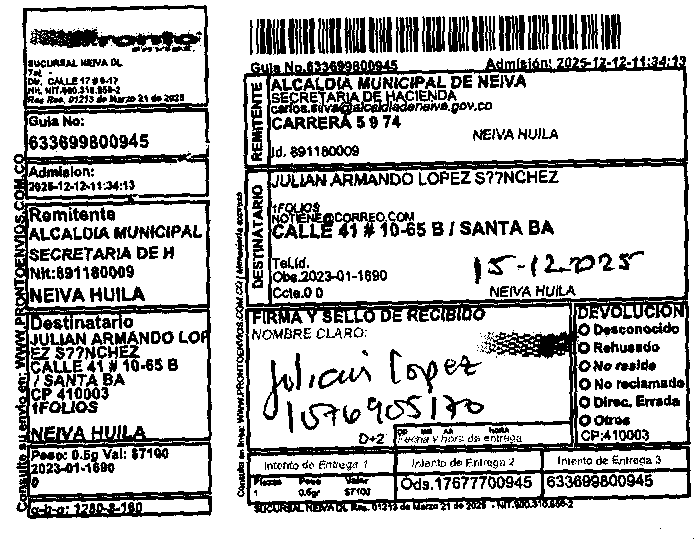 Pronto
envios
SUCURSAL NEIVA DL
Tel -
Dir. CALLE 17 # 9-17
Nit. NIT.900.310.856-2
Res Res. 01213 de Marzo 21 de 2025
Guia No:
633699800945
Admision:
2025-12-12-11:34:13
Remitente
ALCALDIA MUNICIPAL
SECRETARIA DE H
Nit:891180009
NEIVA HUILA
Destinatario
JULIAN ARMANDO LOP
EZ S??NCHEZ
CALLE 41 # 10-65 B
/ SANTA BA
CP 410003
1FOLIOS
NEIVA HUILA
Peso: 0.5g Val: $7100
2023-01-1690
0
Consulte su envio en: WWW.PRONTOENVIOS.COM.CO
Guia No.633699800945 Admisión: 2025-12-12-11:34:13
REMITENTE
ALCALDIA MUNICIPAL DE NEIVA
SECRETARIA DE HACIENDA
carlos.silva@alcaldianeiva.gov.co
CARRERA 5 9 74
NEIVA HUILA
Id. 891180009
DESTINATARIO
JULIAN ARMANDO LOPEZ S??NCHEZ
1FOLIOS
NOTIENE@CORREO.COM
CALLE 41 # 10-65 B / SANTA BA
Tel.Id.
Obs.2023-01-1690
Ccta.0 0
15-12-2025
NEIVA HUILA
FIRMA Y SELLO DE RECIBIDO
NOMBRE CLARO:
Julian Lopez
1076905170
D+2
Fecha y hora de entrega
DEVOLUCION
Desconocido
Rehusado
No reside
No reclamado
Direc. Errada
Otros
CP:410003
Intento de Entrega 1 Intento de Entrega 2 Intento de Entrega 3
Piezas Peso Valor
1 0.5gr $7100
Ods.17677700945
633699800945
SUCURSAL NEIVA DL Res. 01213 de Marzo 21 de 2025 - NIT.900.310.856-2